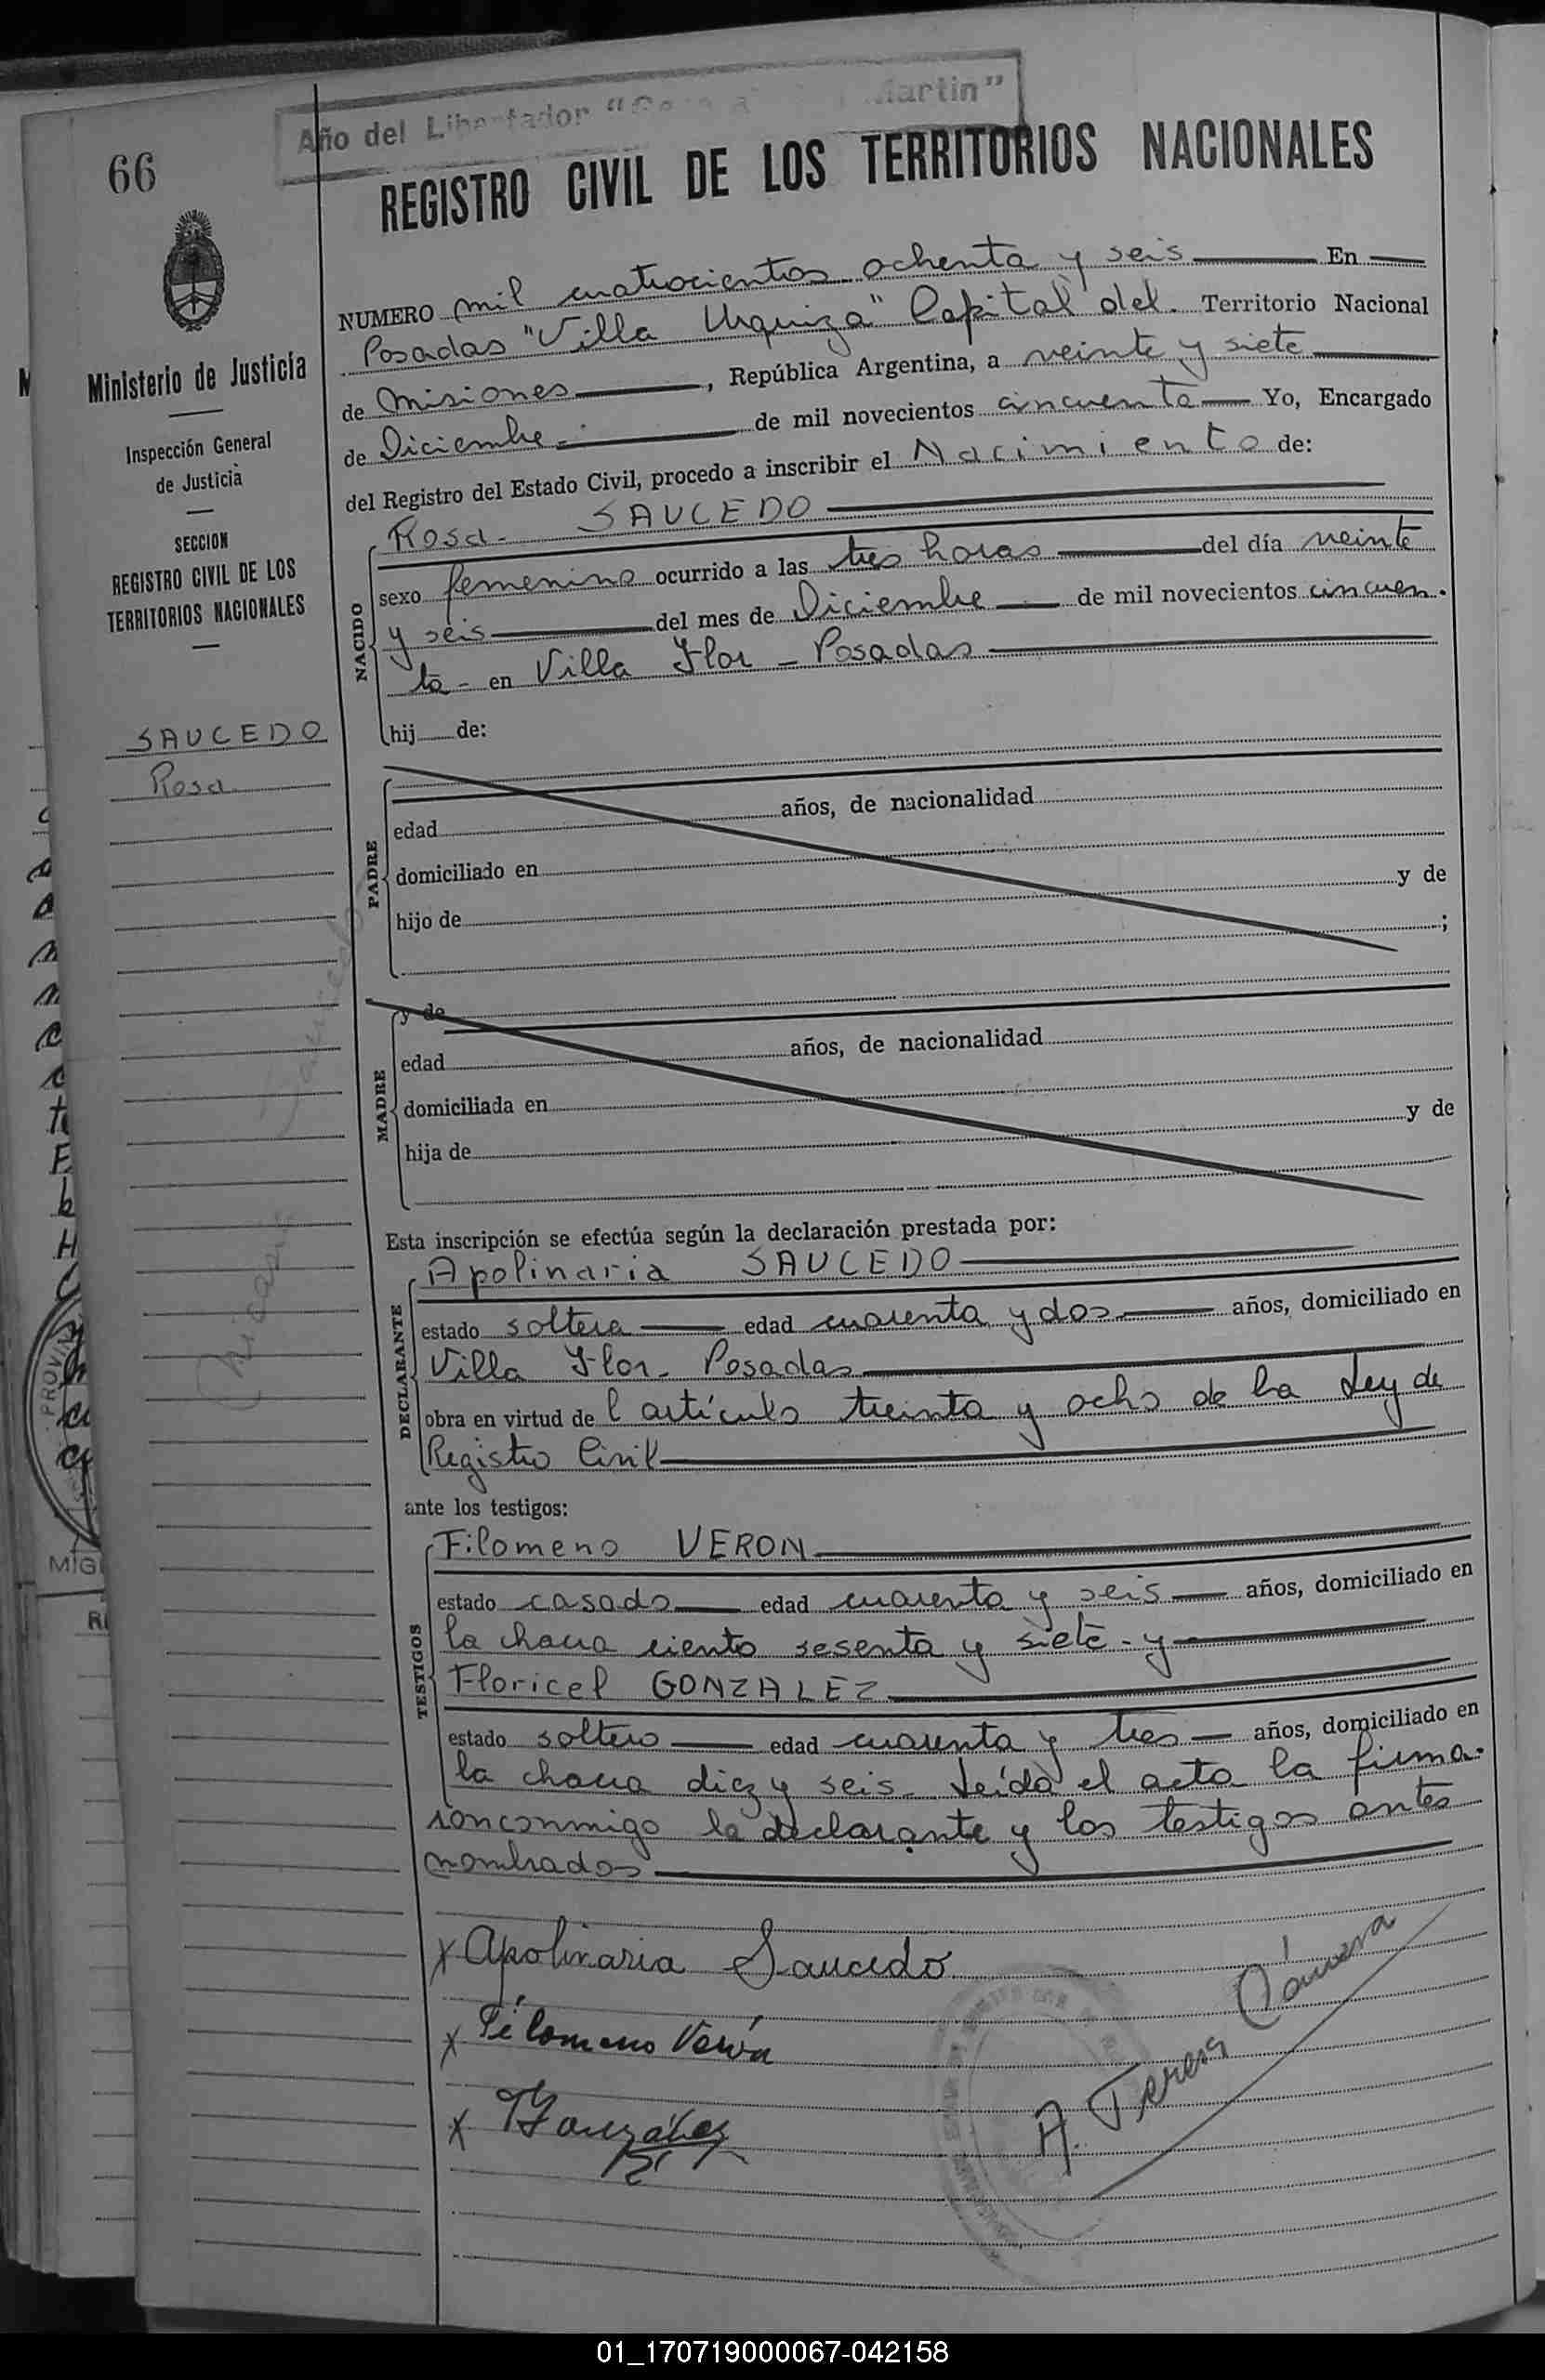 Año del Libertador "Gene Martin"
66
REGISTRO CIVIL DE LOS TERRITORIOS NACIONALES
Ministerio de Justicia
Inspección General
de Justicia
SECCION
REGISTRO CIVIL DE LOS
TERRITORIOS NACIONALES
SAUCEDO
Rosa
NUMERO mil cuatrocientos ochenta y seis En
Posadas "Villa Urquiza" Capital del. Territorio Nacional
de Misiones, República Argentina, a veinte y siete
de Diciembre de mil novecientos cincuenta Yo, Encargado
del Registro del Estado Civil, procedo a inscribir el Nacimiento de:
NACIDO
Rosa SAUCEDO
sexo femenino ocurrido a las tres horas del día veinte
y seis del mes de Diciembre de mil novecientos cincuen-
ta - en Villa Flor - Posadas
hij de:
PADRE
edad años, de nacionalidad
domiciliado en
hijo de y de
;
MADRE
y de
edad años, de nacionalidad
domiciliada en
hija de y de
Esta inscripción se efectúa según la declaración prestada por:
DECLARANTE
Apolinaria SAUCEDO
estado soltera edad cuarenta y dos años, domiciliado en
Villa Flor - Posadas
obra en virtud de l artículo treinta y ocho de la Ley de
Registro Civil
ante los testigos:
TESTIGOS
Filomeno VERON
estado casado edad cuarenta y seis años, domiciliado en
la chacra ciento sesenta y siete - y
Floricel GONZALEZ
estado soltero edad cuarenta y tres años, domiciliado en
la chacra diez y seis. Leída el acta la firma-
ron conmigo la declarante y los testigos antes
nombrados
x Apolinaria Saucedo
x Filomeno Verón
x González
A. Teresa Cámera
01_170719000067-042158